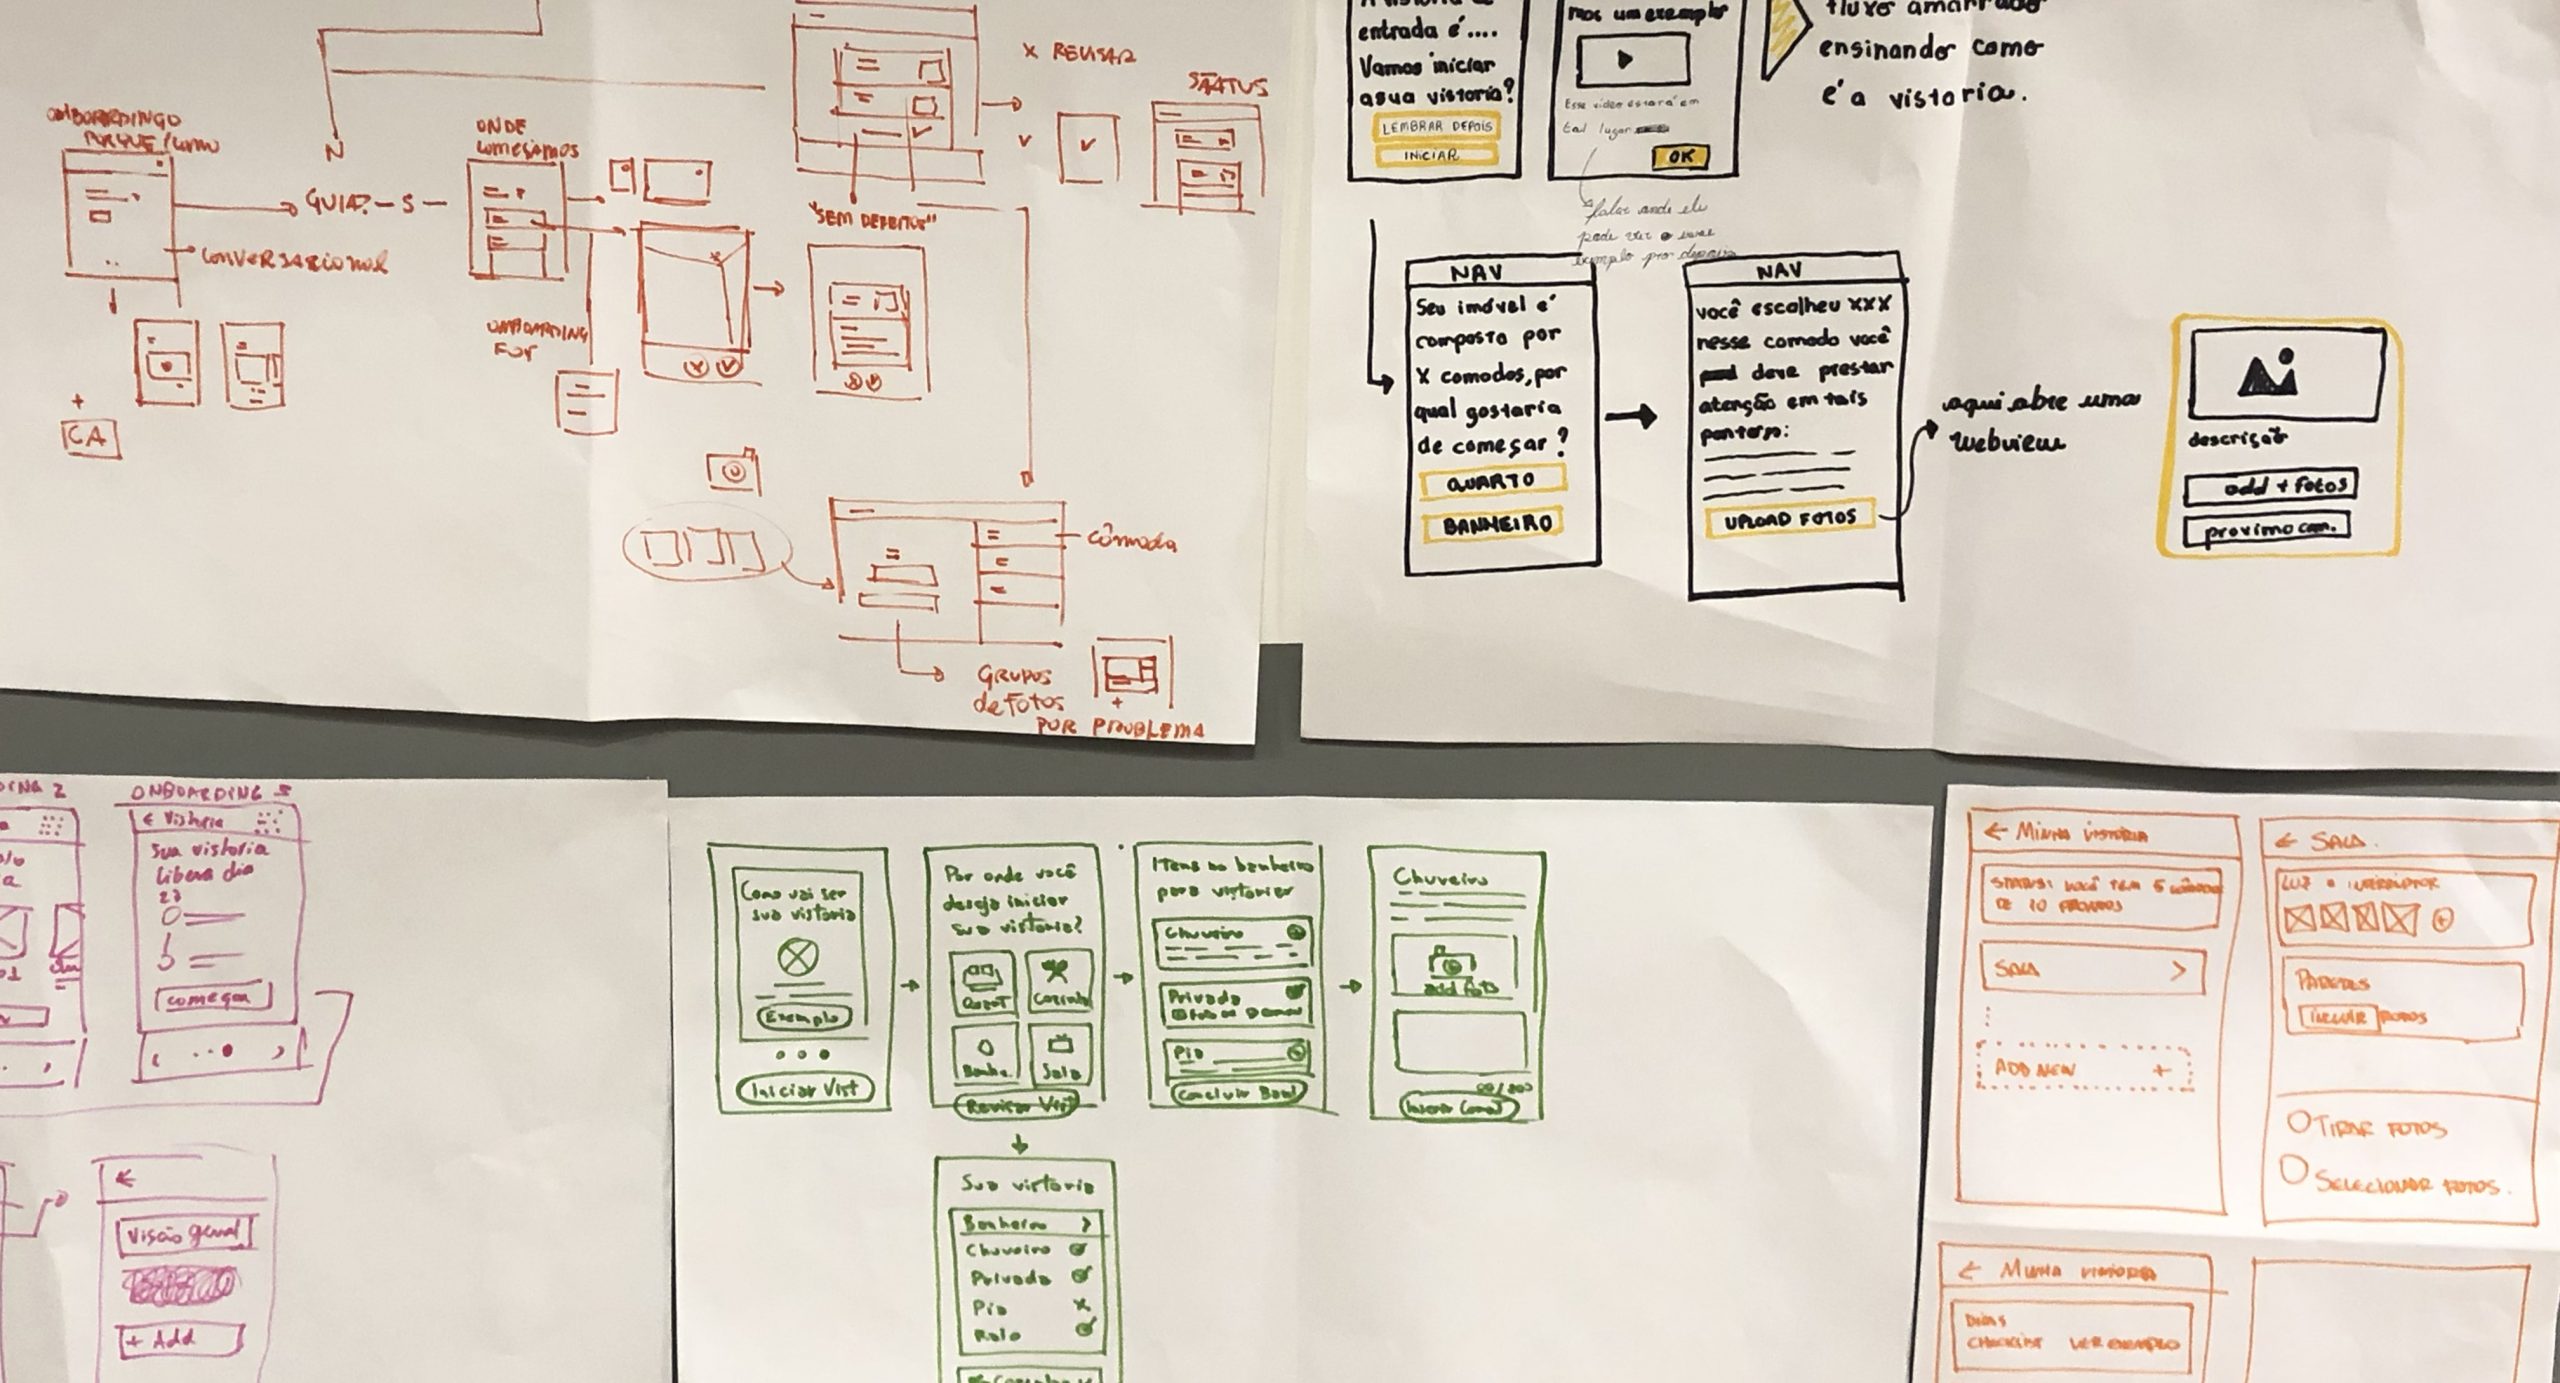 PORQUE / COMO
N
GUIA? - S -
CONVERSACIONAL
+
CA
ONDE
COMEÇAMOS
ONBOARDING
x REVISAR
v
STATUS
"SEM DEFEITOS"
GRUPOS
de FOTOS
POR PROBLEMA
+
entrada é....
Vamos iniciar
a sua vistoria?
LEMBRAR DEPOIS
INICIAR
um exemplo
Esse video estará em
tal lugar
OK
ensinando como
é a vistoria.
falar onde ele
exemplo pro depois
NAV
Seu imóvel é
composto por
X comodos, por
qual gostaria
de começar?
QUARTO
BANHEIRO
NAV
você escolheu XXX
nesse comodo você
deve prestar
atenção em tais
UPLOAD FOTOS
aqui abre uma
webview
descrição
add + fotos
proximo com.
ONBOARDING 3
< Vistoria
Sua vistoria
libera dia
27
começar
←
Visão geral
+ Add
Como vai ser
sua vistoria
Exemplo
Iniciar Vist
Por onde você
deseja iniciar
sua vistoria?
Cozinha
Banhe.
Sala
Revisar Vist
Itens no banheiro
para vistoriar
Chuveiro
Privada
Pia
Concluir Banh
Chuveiro
add foto
Sua vistoria
Banheiro >
Chuveiro
Privada
Pia x
Ralo
← MINHA VISTORIA
STATUS: VOCÊ TEM 5 CÔMODOS
DE 10 PRONTOS
SALA >
ADD NEW +
← SALA
LUZ e INTERRUPTOR
PAREDES
INCLUIR FOTOS
TIRAR FOTOS
SELECIONAR FOTOS.
← MINHA VISTORIA
DICAS
CHECKLIST VER EXEMPLO